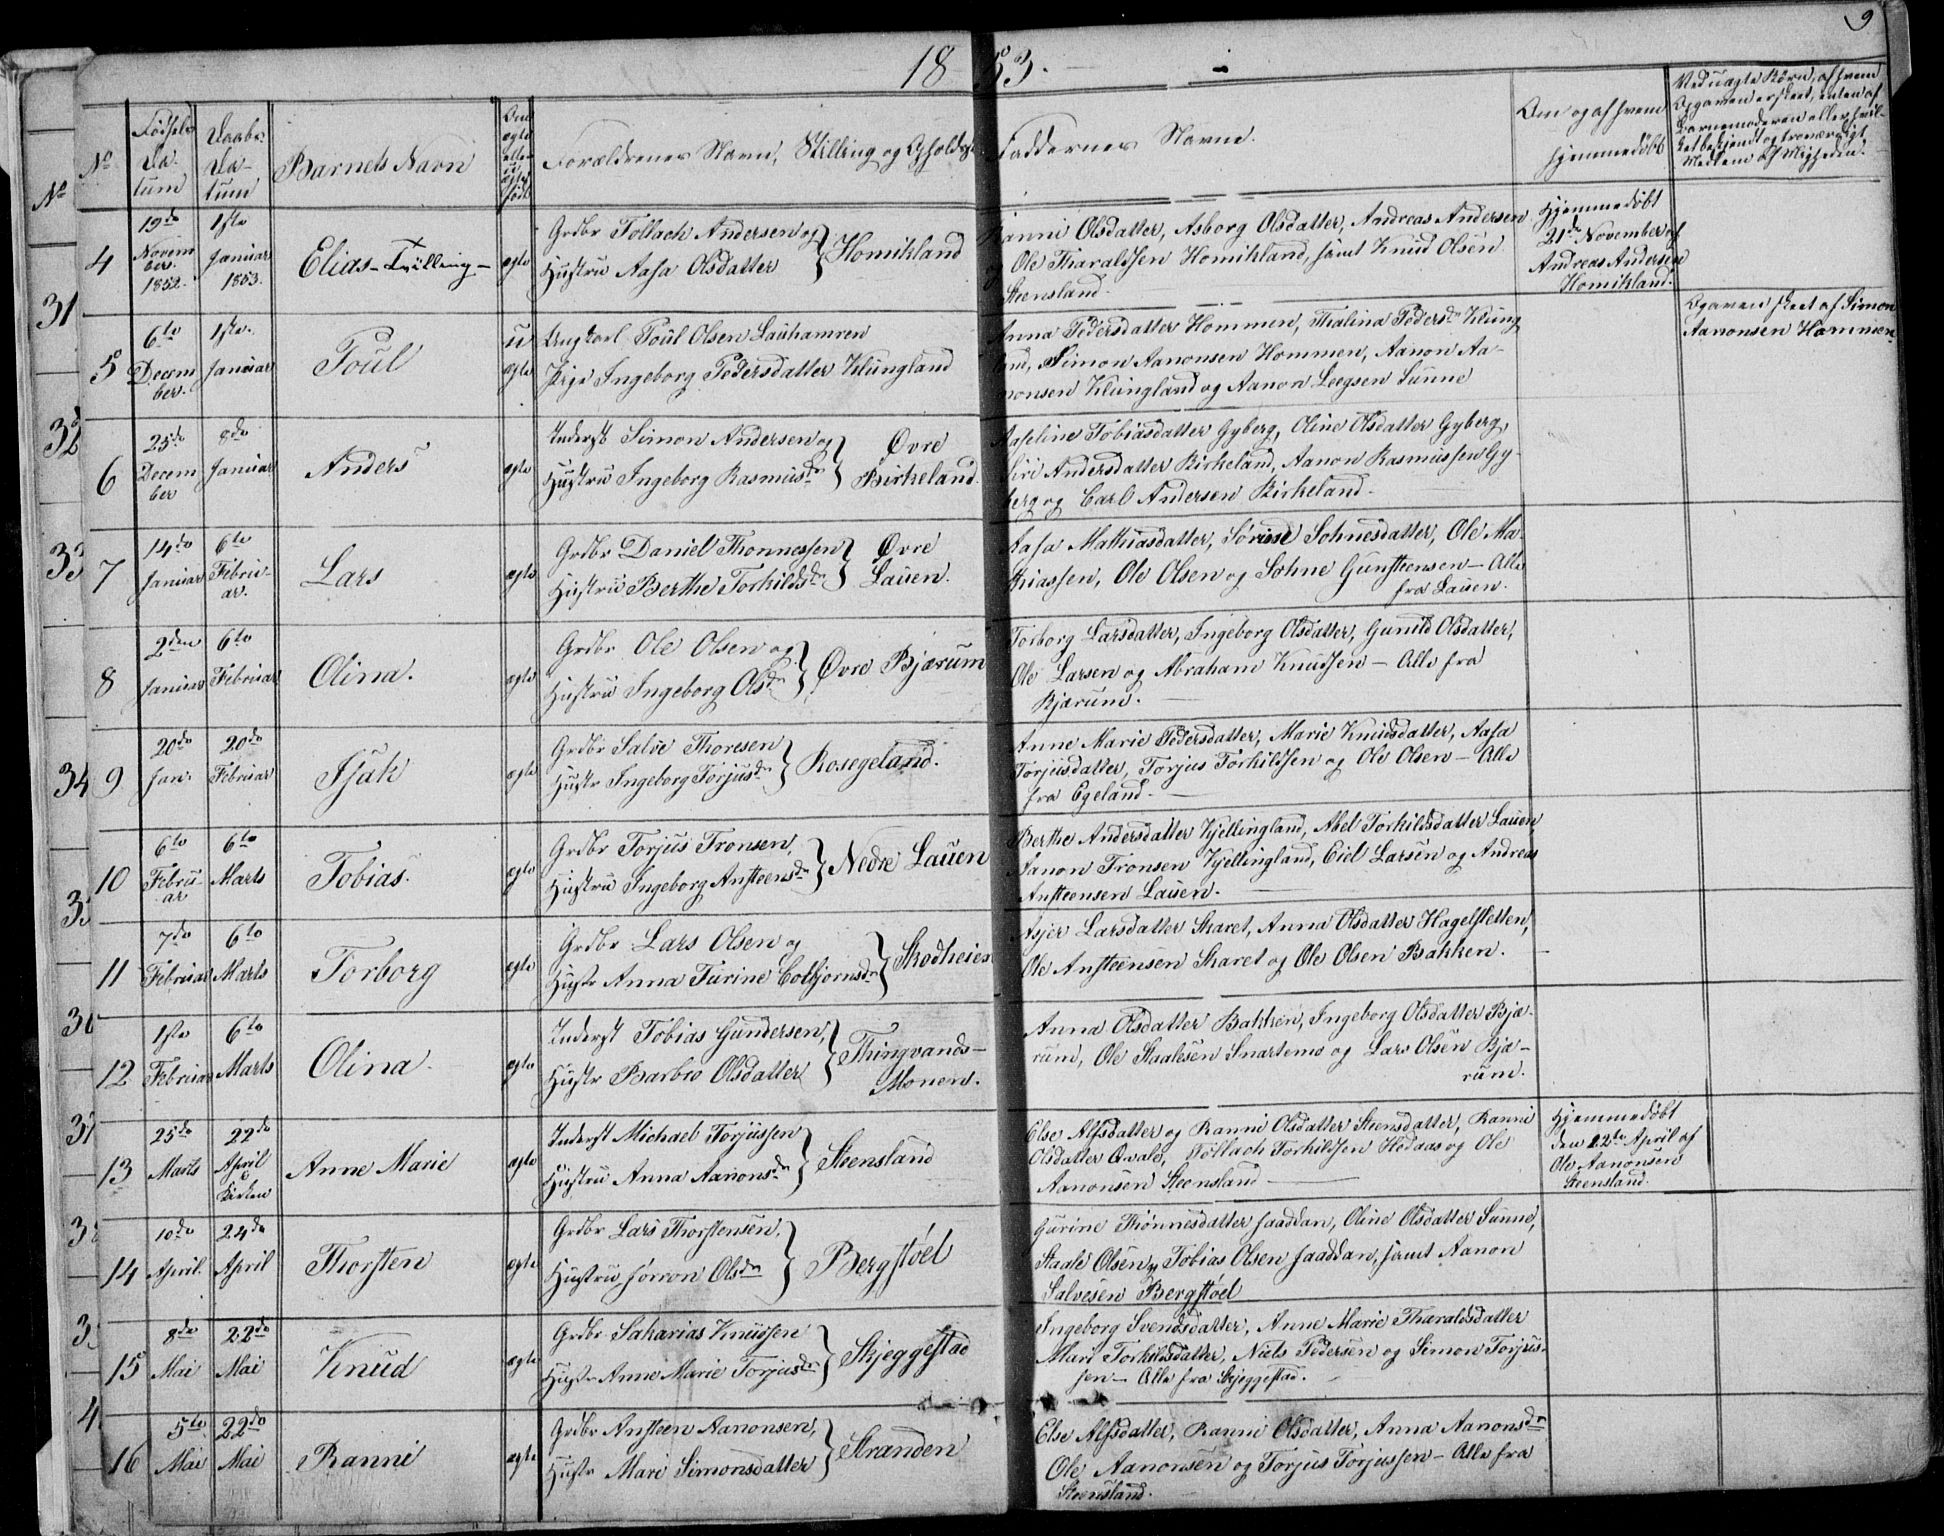 1853.
9
No
Fødsels Da-tum
Daabs Da-tum
Barnets Navn
Om ægte eller uægte født
Forældrenes Navn, Stilling og Opholds
Faddernes Navne.
Om og af hvem hjemmedøbt
Ved uægte Børn, af hvem
Opgaven er skeet, enten af
Barnemoderen eller hvil-
ket bekjendt og troværdigt
Medlem af Menigheden.
4
19de Novem ber. 1852.
1ste Januar 1853.
Elias - Tvilling -
ægte
Grdbr Tollach Andersen og
Hustru Aasa Olsdatter } Homikland
Ranni Olsdatter, Asborg Olsdatter, Andreas Andersen
Ole Tharaldsen Homikland, samt Knud Olsen
Steensland.
Hjemmedøbt
21de November af
Andreas Andersen
Homikland.
5
6te Decem ber.
1ste Januar
Poul
u ægte
Ungkarl Poul Olsen Lauhamren
Pige Ingeborg Pedersdatter Klungland
Anna Pedersdatter Hommen, Thalina Pedersdr Klung
land, Simon Aanonsen Hommen, Aanon Aa-
nonsen Klungland og Aanon Leegsen Sunne
Opgaven skeet af Simon
Aanonsen Hommen
6
25de Decem ber
8de Januar
Anders
ægte
Inderst Simon Andersen og
Hustru Ingeborg Rasmusdr } Øvre Birkeland.
Aaseline Tobiasdatter Gyberg, Oline Olsdatter Gyberg,
Siri Andersdatter Birkeland, Aanon Rasmussen Gy-
berg og Carl Andersen Birkeland.
7
14de Januar
6te Febru-ar.
Lars
ægte
Grdbr Daniel Thonnessen
Hustru Berthe Torkildsdr } Øvre Lauen.
Aasa Mathiasdatter, Sørine Sohnesdatter, Ole Ma-
thiassen, Ole Olsen og Sohne Gunsteensen - Alle
fra Lauen.
8
2den Januar
6te Februar
Olina.
ægte
Grdbr Ole Olsen og
Hustru Ingeborg Olsdr } Øvre Bjærum
Torborg Larsdatter, Ingeborg Olsdatter, Gunild Olsdatter,
Ole Larsen og Abraham Knudsen - Alle fra
Bjærum.
9
20de Jan.
20de Februar
Isak
ægte
Grdbr Salve Thoresen
Hustr Ingeborg Torjusdr } Rosegeland.
Anne Marie Pedersdatter, Marie Knudsdatter, Aasa
Torjusdatter, Torjus Torkildsen og Ole Olsen - Alle
fra Egeland.
10
6te Febru-ar
6te Marts
Tobias.
ægte
Grdbr Torjus Tronsen,
Hustru Ingeborg Ansteensdr } Nedre Lauen
Berthe Andersdatter Kjellingland, Abel Torkildsdatter Lauen
Aanon Tronsen Kjellingland, Eiel Larsen og Andreas
Ansteensen Lauen.
11
7de Februar
6te Marts
Torborg
ægte
Grdbr Lars Olsen og
Hustr Anna Turine Colbjornsdr } Skodheien
Asjer Larsdatter Skaret, Anna Olsdatter Hagesletten,
Ole Ansteensen Skaret og Ole Olsen Bakken.
12
1ste Februar
6te Marts
Olina.
ægte
Inderst Tobias Gundersen,
Hustr Barbro Olsdatter } Thingvands-Monen.
Anna Olsdatter Bakken, Ingeborg Olsdatter Bjæ-
rum, Ole Staalesen Snartemo og Lars Olsen Bjæ-
rum.
13
25de Marts
22de April i Kirken
Anne Marie
ægte
Inderst Michael Torjussen
Hustru Anna Aanonsdr } Steensland
Else Alfsdatter og Ranni Olsdatter Steensdatter, Ranni
Olsdatter Qvale, Tollach Torkildsen Hodaas og Ole
Aanonsen Steensland
Hjemmedøbt
den 22de April af
Ole Aanonsen
Steensland.
14
10de April.
24de April
Thorsten
ægte
Grdbr Lars Thorstensen,
Hustru Jorron Olsdr } Bergstøel
Gurine Thønnesdatter Jaaddan, Oline Olsdatter Sunne,
Staale Olsen, Tobias Olsen Jaaddan, samt Aanon
Salvesen Bergstøel
15
8de Mai
22de Mai
Knud
ægte
Grdbr Sakarias Knudsen
Hustr Anne Marie Torjusdr } Skjeggestad
Ingeborg Svendsdatter, Anne Marie Tharaldsdatter
Mari Torkildsdatter, Niels Pedersen og Simon Torjus-
sen - Alle fra Skjeggestad.
16
5te Mai
22de Mai
Ranni
ægte
Grdbr Ansteen Aanonsen,
Hustr Mari Simonsdatter } Stranden
Else Alfsdatter, Ranni Olsdatter, Anna Aanonsdr
Ole Aanonsen og Torjus Torjussen - Alle fra
Steensland.
No
31
32
33
34
3
36
37
3
3
4